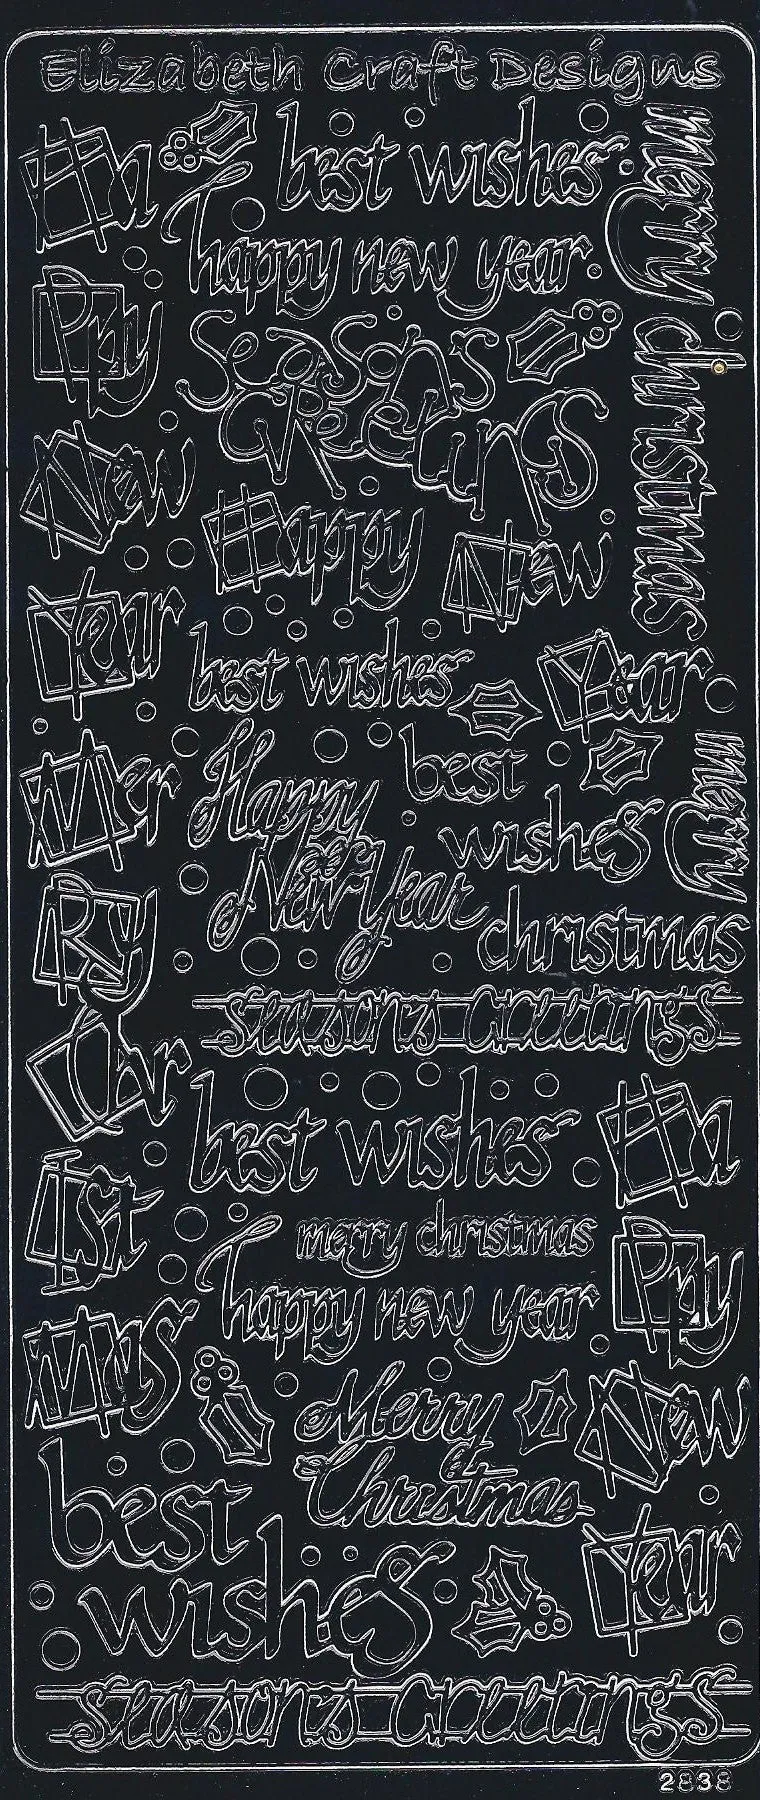 Elizabeth Craft Designs
Ha
best wishes
merry
happy new year
Ppy
Seasons
Greetings
christmas
New
Happy
New
Year
best wishes
Year
Mer
Happy
New Year
best
wishes
merry
Ry
christmas
seasons Greetings
Chr
best wishes
Ha
Ist
merry christmas
happy new year
Ppy
Mas
Merry
Christmas
New
best
wishes
Year
seasons Greetings
2838